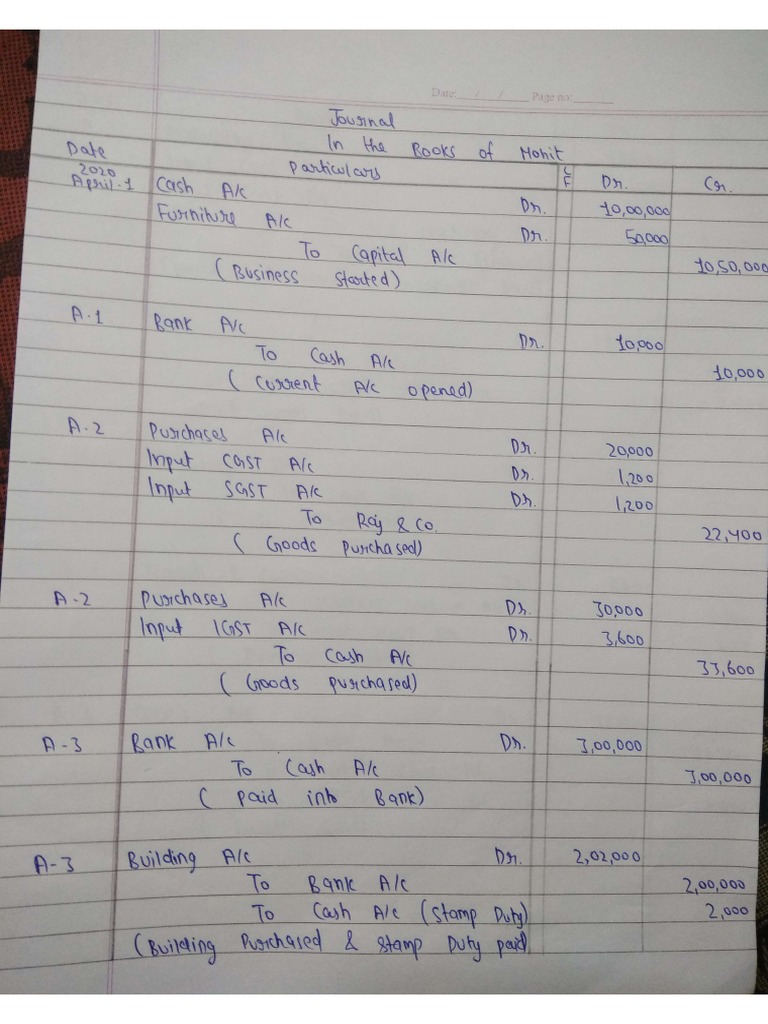 Date: / / Page no:
Journal
In the Books of Mohit
Date Particulars LF Dr. Cr.
2020
April-1 Cash A/c Dr. 10,00,000
Furniture A/c Dr. 50,000
To Capital A/c 10,50,000
(Business Started)
A-1 Bank A/c Dr. 10,000
To Cash A/c 10,000
(Current A/c opened)
A-2 Purchases A/c Dr. 20,000
Input CGST A/c Dr. 1,200
Input SGST A/c Dr. 1,200
To Raj & Co. 22,400
(Goods Purchased)
A-2 Purchases A/c Dr. 30,000
Input IGST A/c Dr. 3,600
To Cash A/c 33,600
(Goods purchased)
A-3 Bank A/c Dr. 3,00,000
To Cash A/c 3,00,000
(Paid into Bank)
A-3 Building A/c Dr. 2,02,000
To Bank A/c 2,00,000
To Cash A/c (Stamp Duty) 2,000
(Building Purchased & Stamp Duty paid